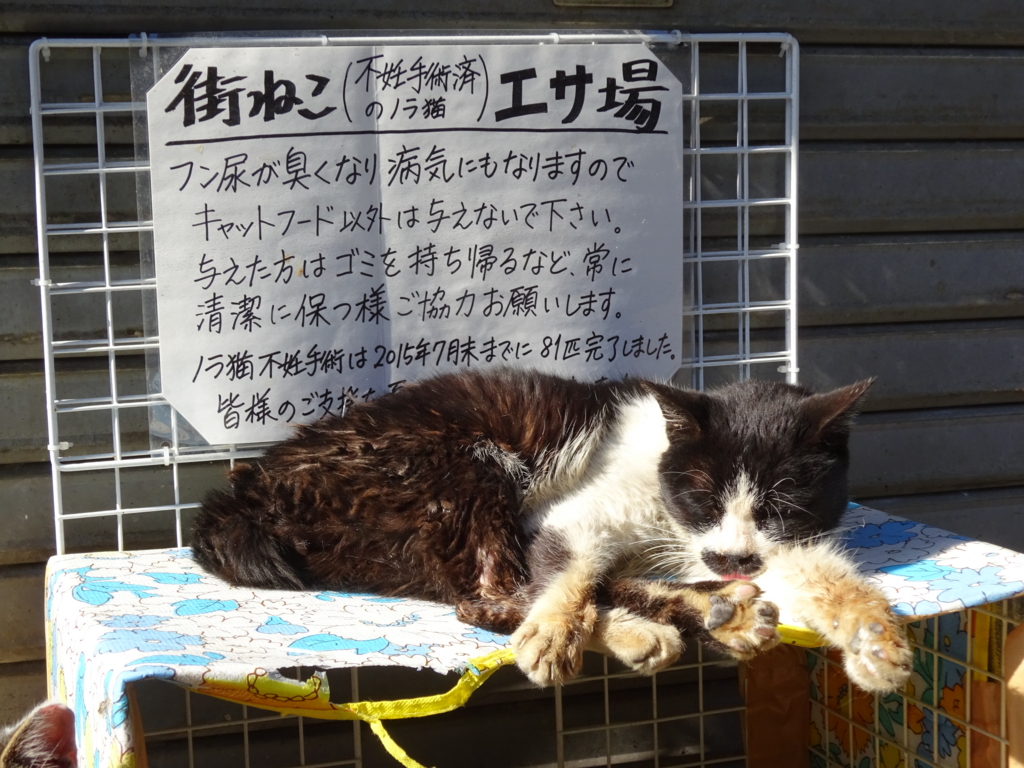 街ねこ(不妊手術済のノラ猫)エサ場
フン尿が臭くなり病気にもなりますので
キャットフード以外は与えないで下さい。
与えた方はゴミを持ち帰るなど、常に
清潔に保つ様ご協力お願いします。
ノラ猫不妊手術は2015年7月末までに81匹完了しました。
皆様のご支援を